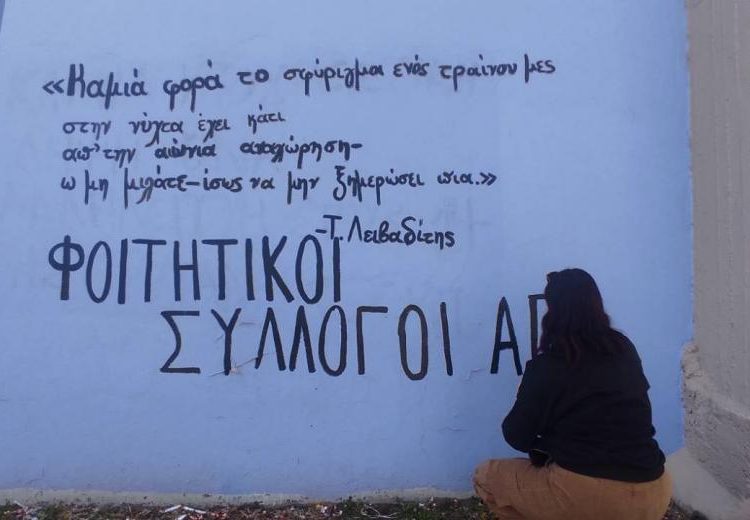 «Καμιά φορά το σφύριγμα ενός τραίνου μες
στην νύχτα έχει κάτι
απ' την αιώνια αναχώρηση-
ω μη μιλάτε-ίσως να μην ξημερώσει πια.»
-Τ. Λειβαδίτης
ΦΟΙΤΗΤΙΚΟΙ
ΣΥΛΛΟΓΟΙ ΑΠ